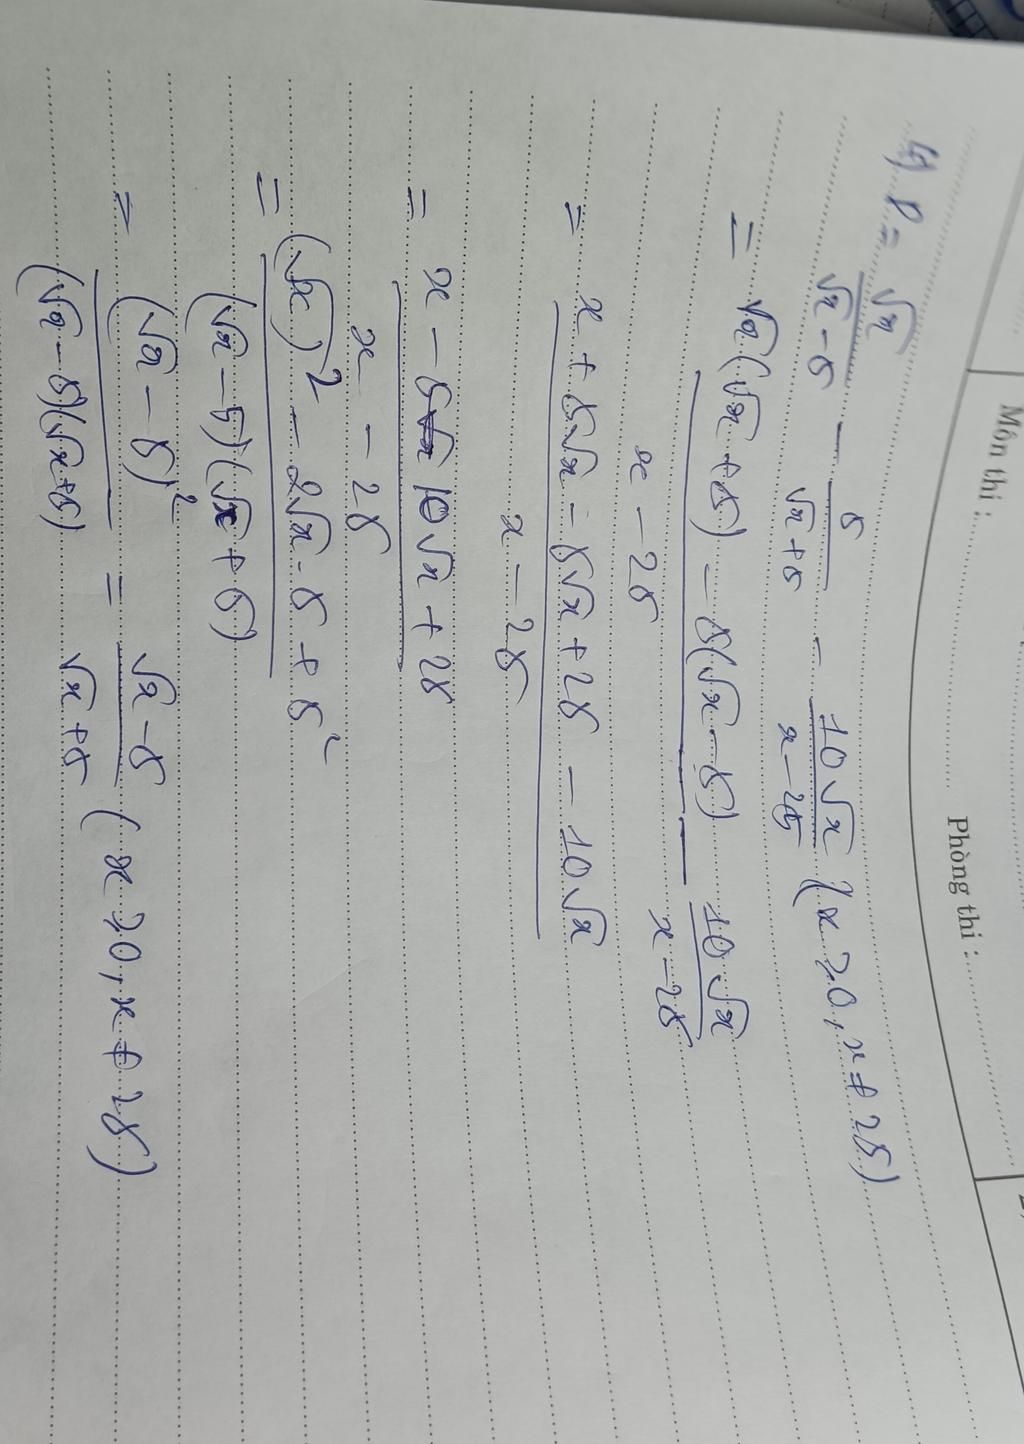 Môn thi :
Phòng thi :
4) P = √x/(√x - 5) - 5/(√x + 5) - 10√x/(x - 25) (x ≥ 0, x ≠ 25)
= (√x(√x + 5) - 5(√x - 5))/(x - 25) - 10√x/(x - 25)
= (x + 5√x - 5√x + 25 - 10√x)/(x - 25)
= (x - 10√x + 25)/(x - 25)
= ((√x)² - 2√x . 5 + 5²)/((√x - 5)(√x + 5))
= (√x - 5)²/((√x - 5)(√x + 5)) = (√x - 5)/(√x + 5) (x ≥ 0, x ≠ 25)